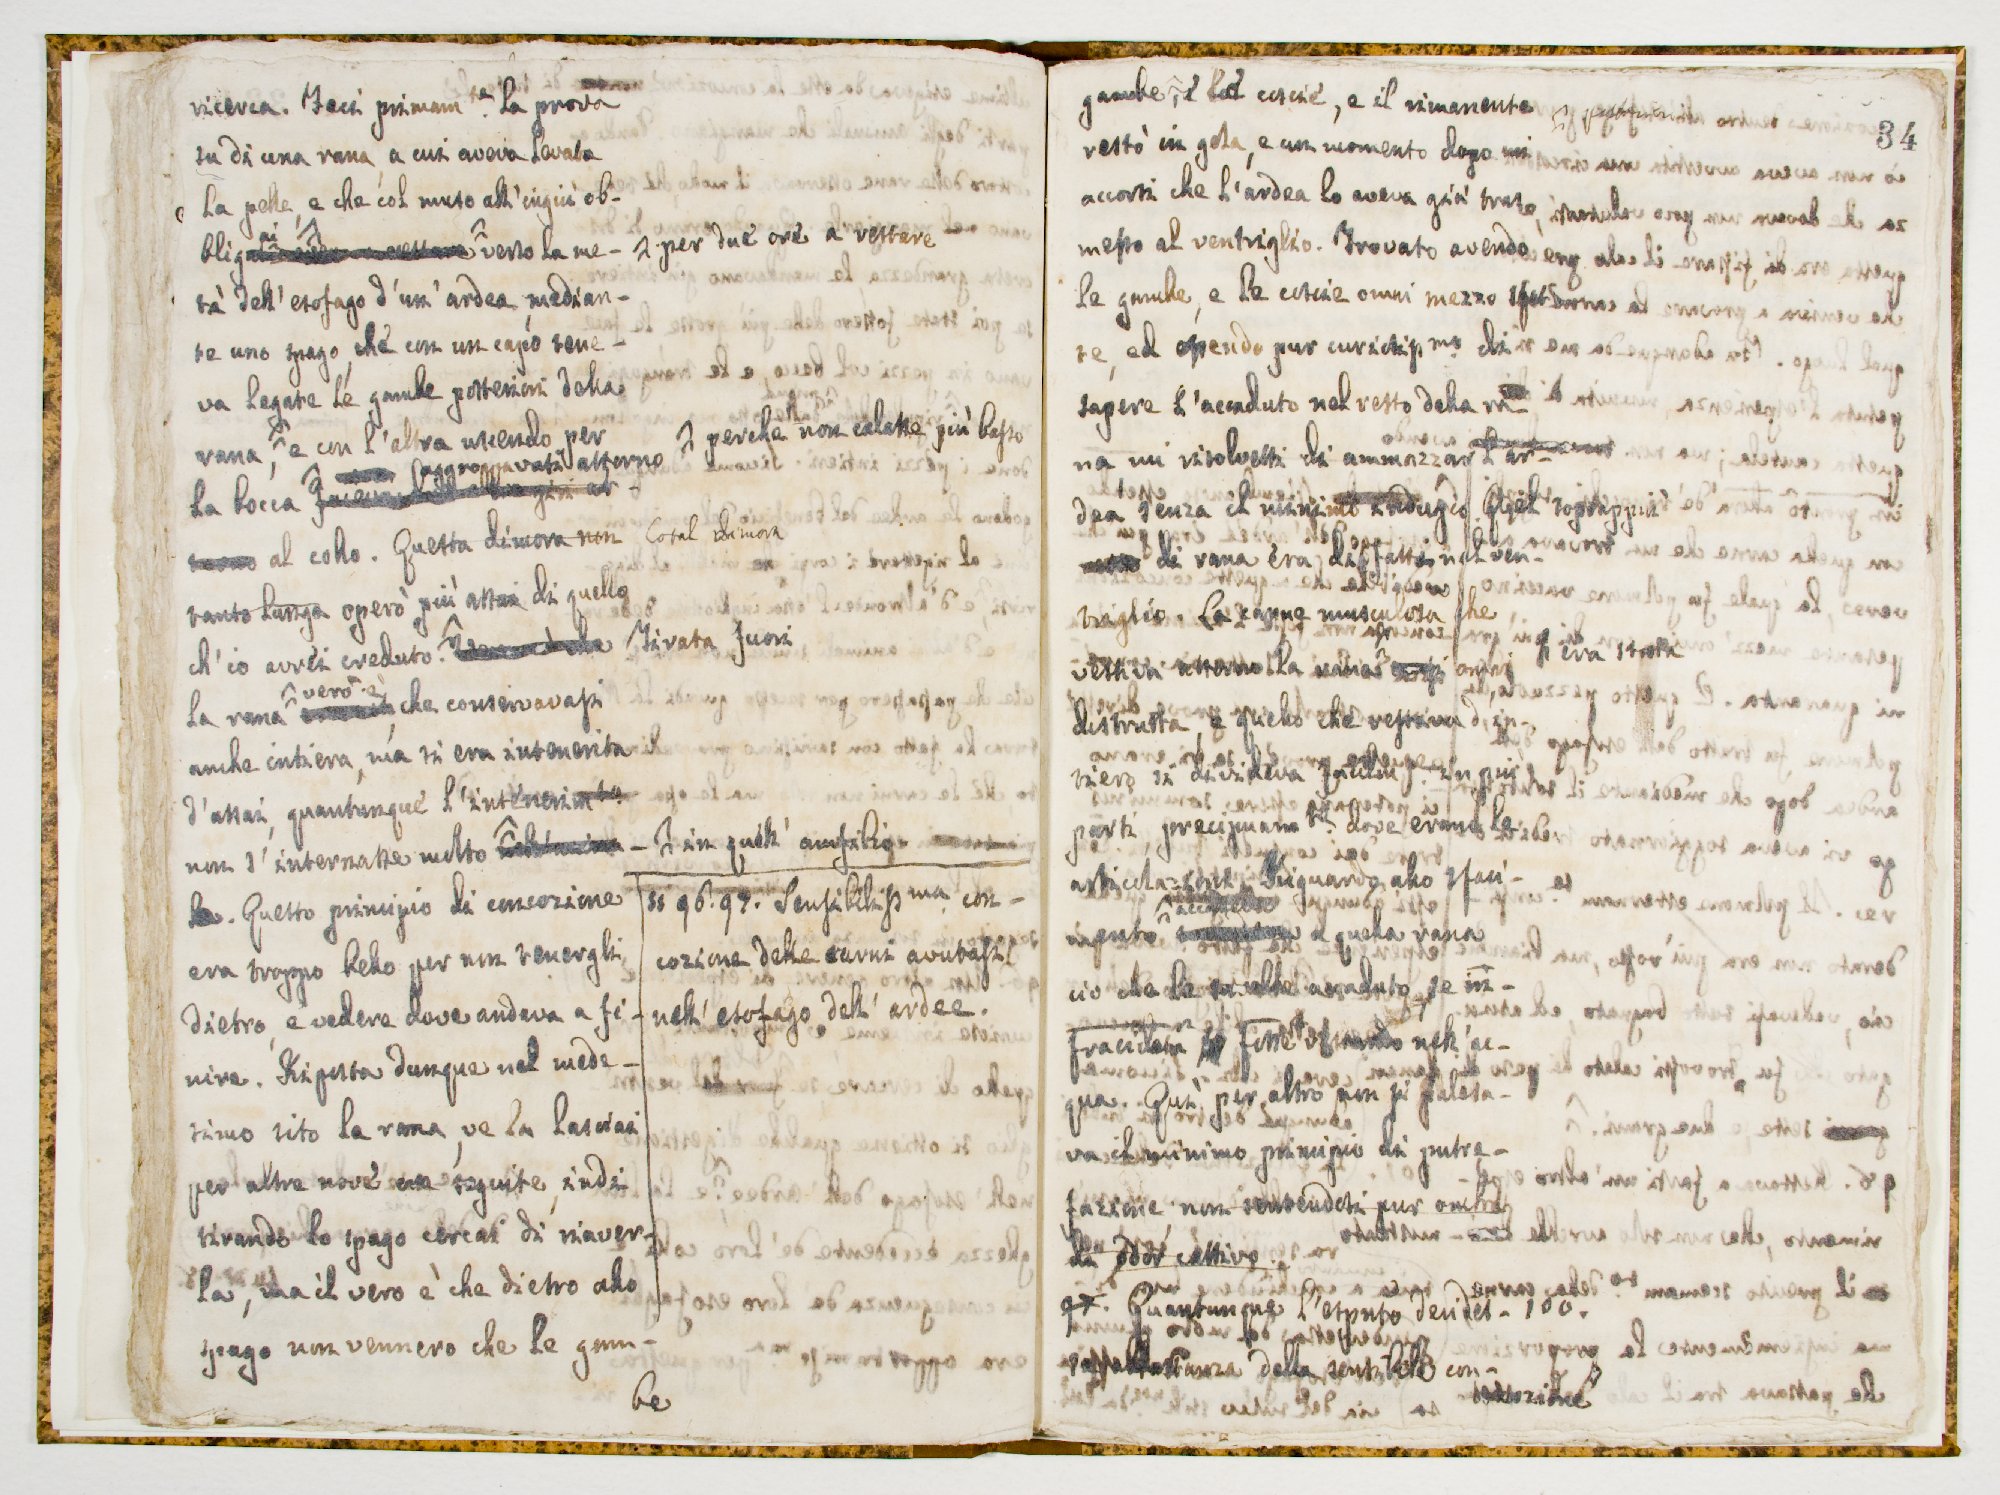 ricerca. Feci primam.te la prova
su di una rana, a cui aveva levata
la pelle, e che col muso all'ingiù ob-
bligai verso la me-
per due ore a restare
tà dell'esofago d'un'ardea, median-
te uno spago, che con un capo tene-
va legate le gambe posteriori della
rana, e con l'altro uscendo per
perche non calasse più basso
aggroppavasi attorno
la bocca
al collo. Questa dimora non
Cotal dimora
tanto lunga operò più assai di quello
ch'io avrei creduto. Tirata fuori
la rana vero è, che conservavasi
anche intiera, ma si era intenerita
d'assai, quantunque l'intenerim.to
non s'internasse molto
in quell'anfibio
Questo principio di concozione
era troppo bello per non tenergli
dietro, e vedere dove andava a fi-
nire. Riposta dunque nel mede-
simo sito la rana, ve la lasciai
per altre nove ore seguite, indi
tirando lo spago cercai di riaver-
la, ma il vero è che dietro allo
spago non vennero che le gam-
be
§§ 96. 97. Sensibiliss.ma con-
cozione delle carni avutasi
nell'esofago dell'ardee.
34
gambe, e le coscie, e il rimanente
restò in gola, e un momento dopo mi
accorsi che l'ardea lo aveva già tras-
messo al ventriglio. Trovato avendo
le gambe, e le coscie omai mezzo
te, ed essendo pur curiosiss.mo di
sapere l'accaduto nel resto della ra-
na mi risolvetti di ammazzar l'ar-
dea senza il minimo indugio. Quel soprappiù
di rana era disfatti nel ven-
triglio. La carne musculosa che
vestiva attorno la rana omai
era stata
distrutta, e quello che restava d'in-
tiero si divideva facilm.te in più
parti, precipuam.te dove erano le
articolazioni. Riguardo allo sfaci-
mento accadette a quella rana
ciò che le sarebbe accaduto, se in-
fracidata si fosse nell'ac-
qua. Qui per altro non si palesa-
va il minimo principio di putre-
fazione non sentendosi pur ombra
di odor cattivo.
97. Quantunque l'esposto desidei- 100.
della sensibile con-
cozione